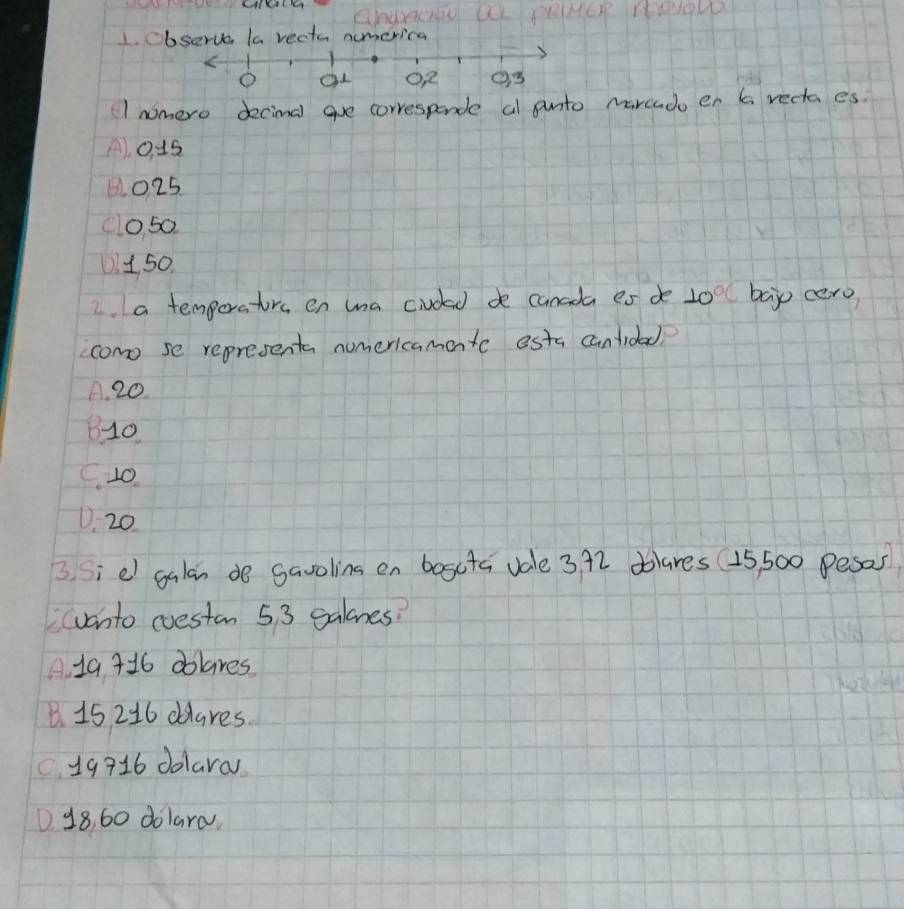 1. Observa la recta numerica
0 0,1 0,2 0,3
el número decimal que corresponde al punto marcado en la recta es:
A). 0,15
B). 0,25
C) 0,50
D) 1,50
2. La temperatura en una ciudad de canada es de 10°C bajo cero,
¿como se representa numericamente esta cantidad?
A. 20
B-10
C. 10
D. -20
3. Si el galón de gasolina en bogotá vale 3,72 dolares (15,500 pesos),
¿Cuánto cuestan 5,3 galones?
A. 19,716 dolares
B. 15,216 dolares
C. 19716 dolares
D. 18,60 dólares